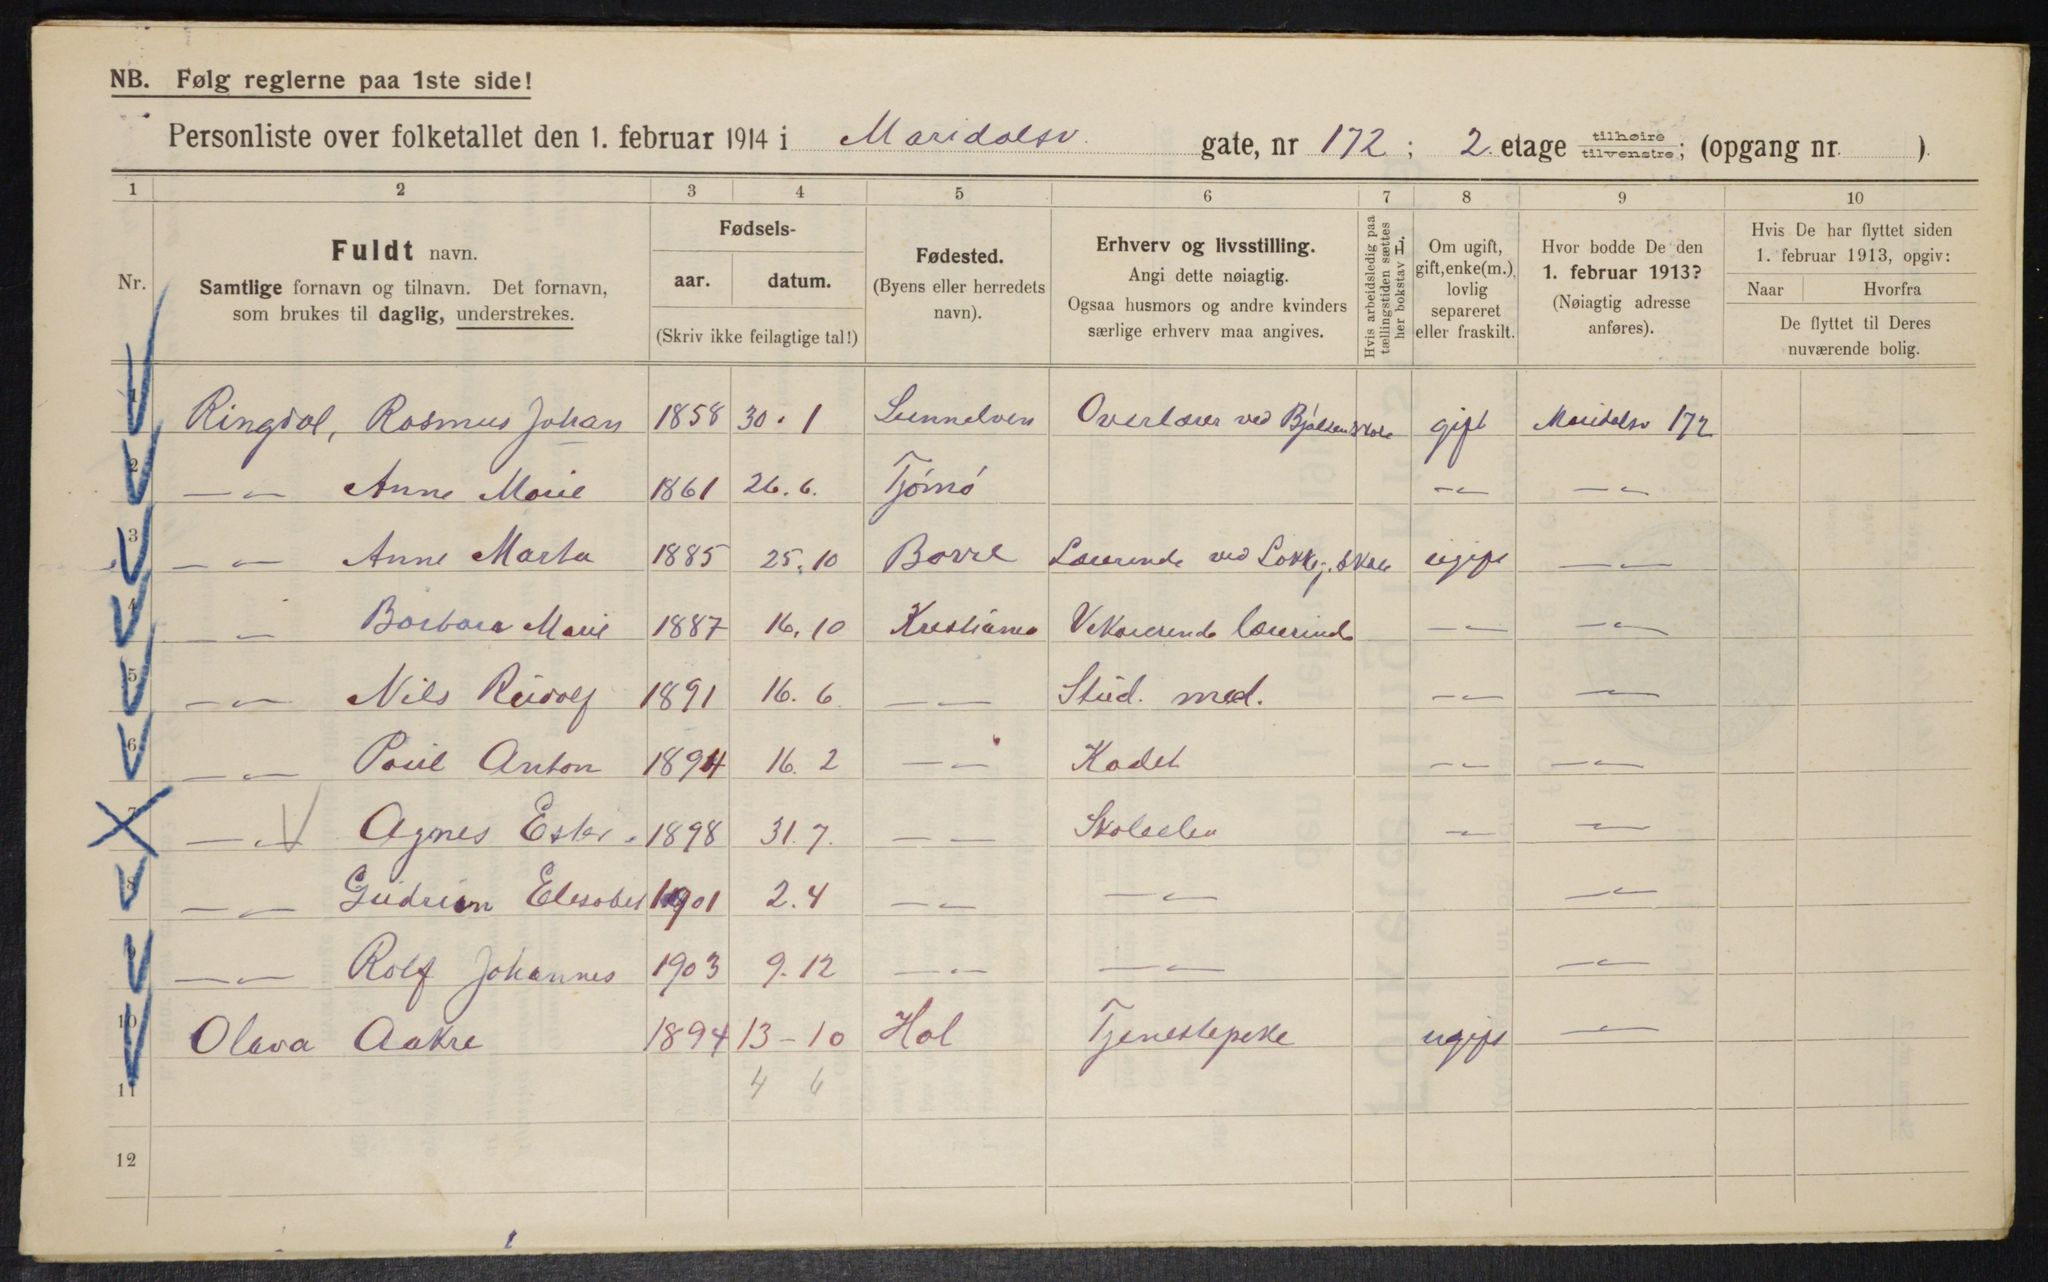 NB. Følg reglerne paa 1ste side!
Personliste over folketallet den 1. februar 1914 i Maridalsv. gate, nr 172; 2 etage tilhøire/tilvenstre; (opgang nr. ).
1 2 3 4 5 6 7 8 9 10
Nr.
Fuldt navn.
Samtlige fornavn og tilnavn. Det fornavn,
som brukes til daglig, understrekes.
Fødsels-
aar. datum.
(Skriv ikke feilagtige tal!)
Fødested.
(Byens eller herredets
navn).
Erhverv og livsstilling.
Angi dette nøiagtig.
Ogsaa husmors og andre kvinders
særlige erhverv maa angives.
Hvis arbeidsledig paa
tællingstiden sættes
her bokstav L.
Om ugift,
gift, enke(m.),
lovlig
separeret
eller fraskilt.
Hvor bodde De den
1. februar 1913?
(Nøiagtig adresse
anføres).
Hvis De har flyttet siden
1. februar 1913, opgiv:
Naar Hvorfra
De flyttet til Deres
nuværende bolig.
1 Ringdal, Rasmus Johan 1858 30.1 Sunnelven Overlærer ved Bjølsen skole gift Maridalsv 172
2 —〃— Anne Marie 1861 26.6. Tjømø —〃— —〃—
3 —〃— Anne Marta 1885 25.10 Borre Lærerinde ved Lakkeg. skole ugift —〃—
4 —〃— Barbara Marie 1887 16.10 Kristiania Vikarierende lærerinde —〃— —〃—
5 —〃— Nils Rudolf 1891 16.6. —〃— Stud. med. —〃— —〃—
6 —〃— Poul Anton 1894 16.2 —〃— Kadet —〃— —〃—
7 —〃— Agnes Ester 1898 31.7. —〃— Skoleelev —〃— —〃—
8 —〃— Gudrun Elisabet 1901 2.4 —〃— —〃— —〃—
9 —〃— Rolf Johannes 1903 9.12 —〃— —〃— —〃—
10 Olava Aakre 1894 13-10 Hol Tjenestepike ugift —〃—
11 4 6
12